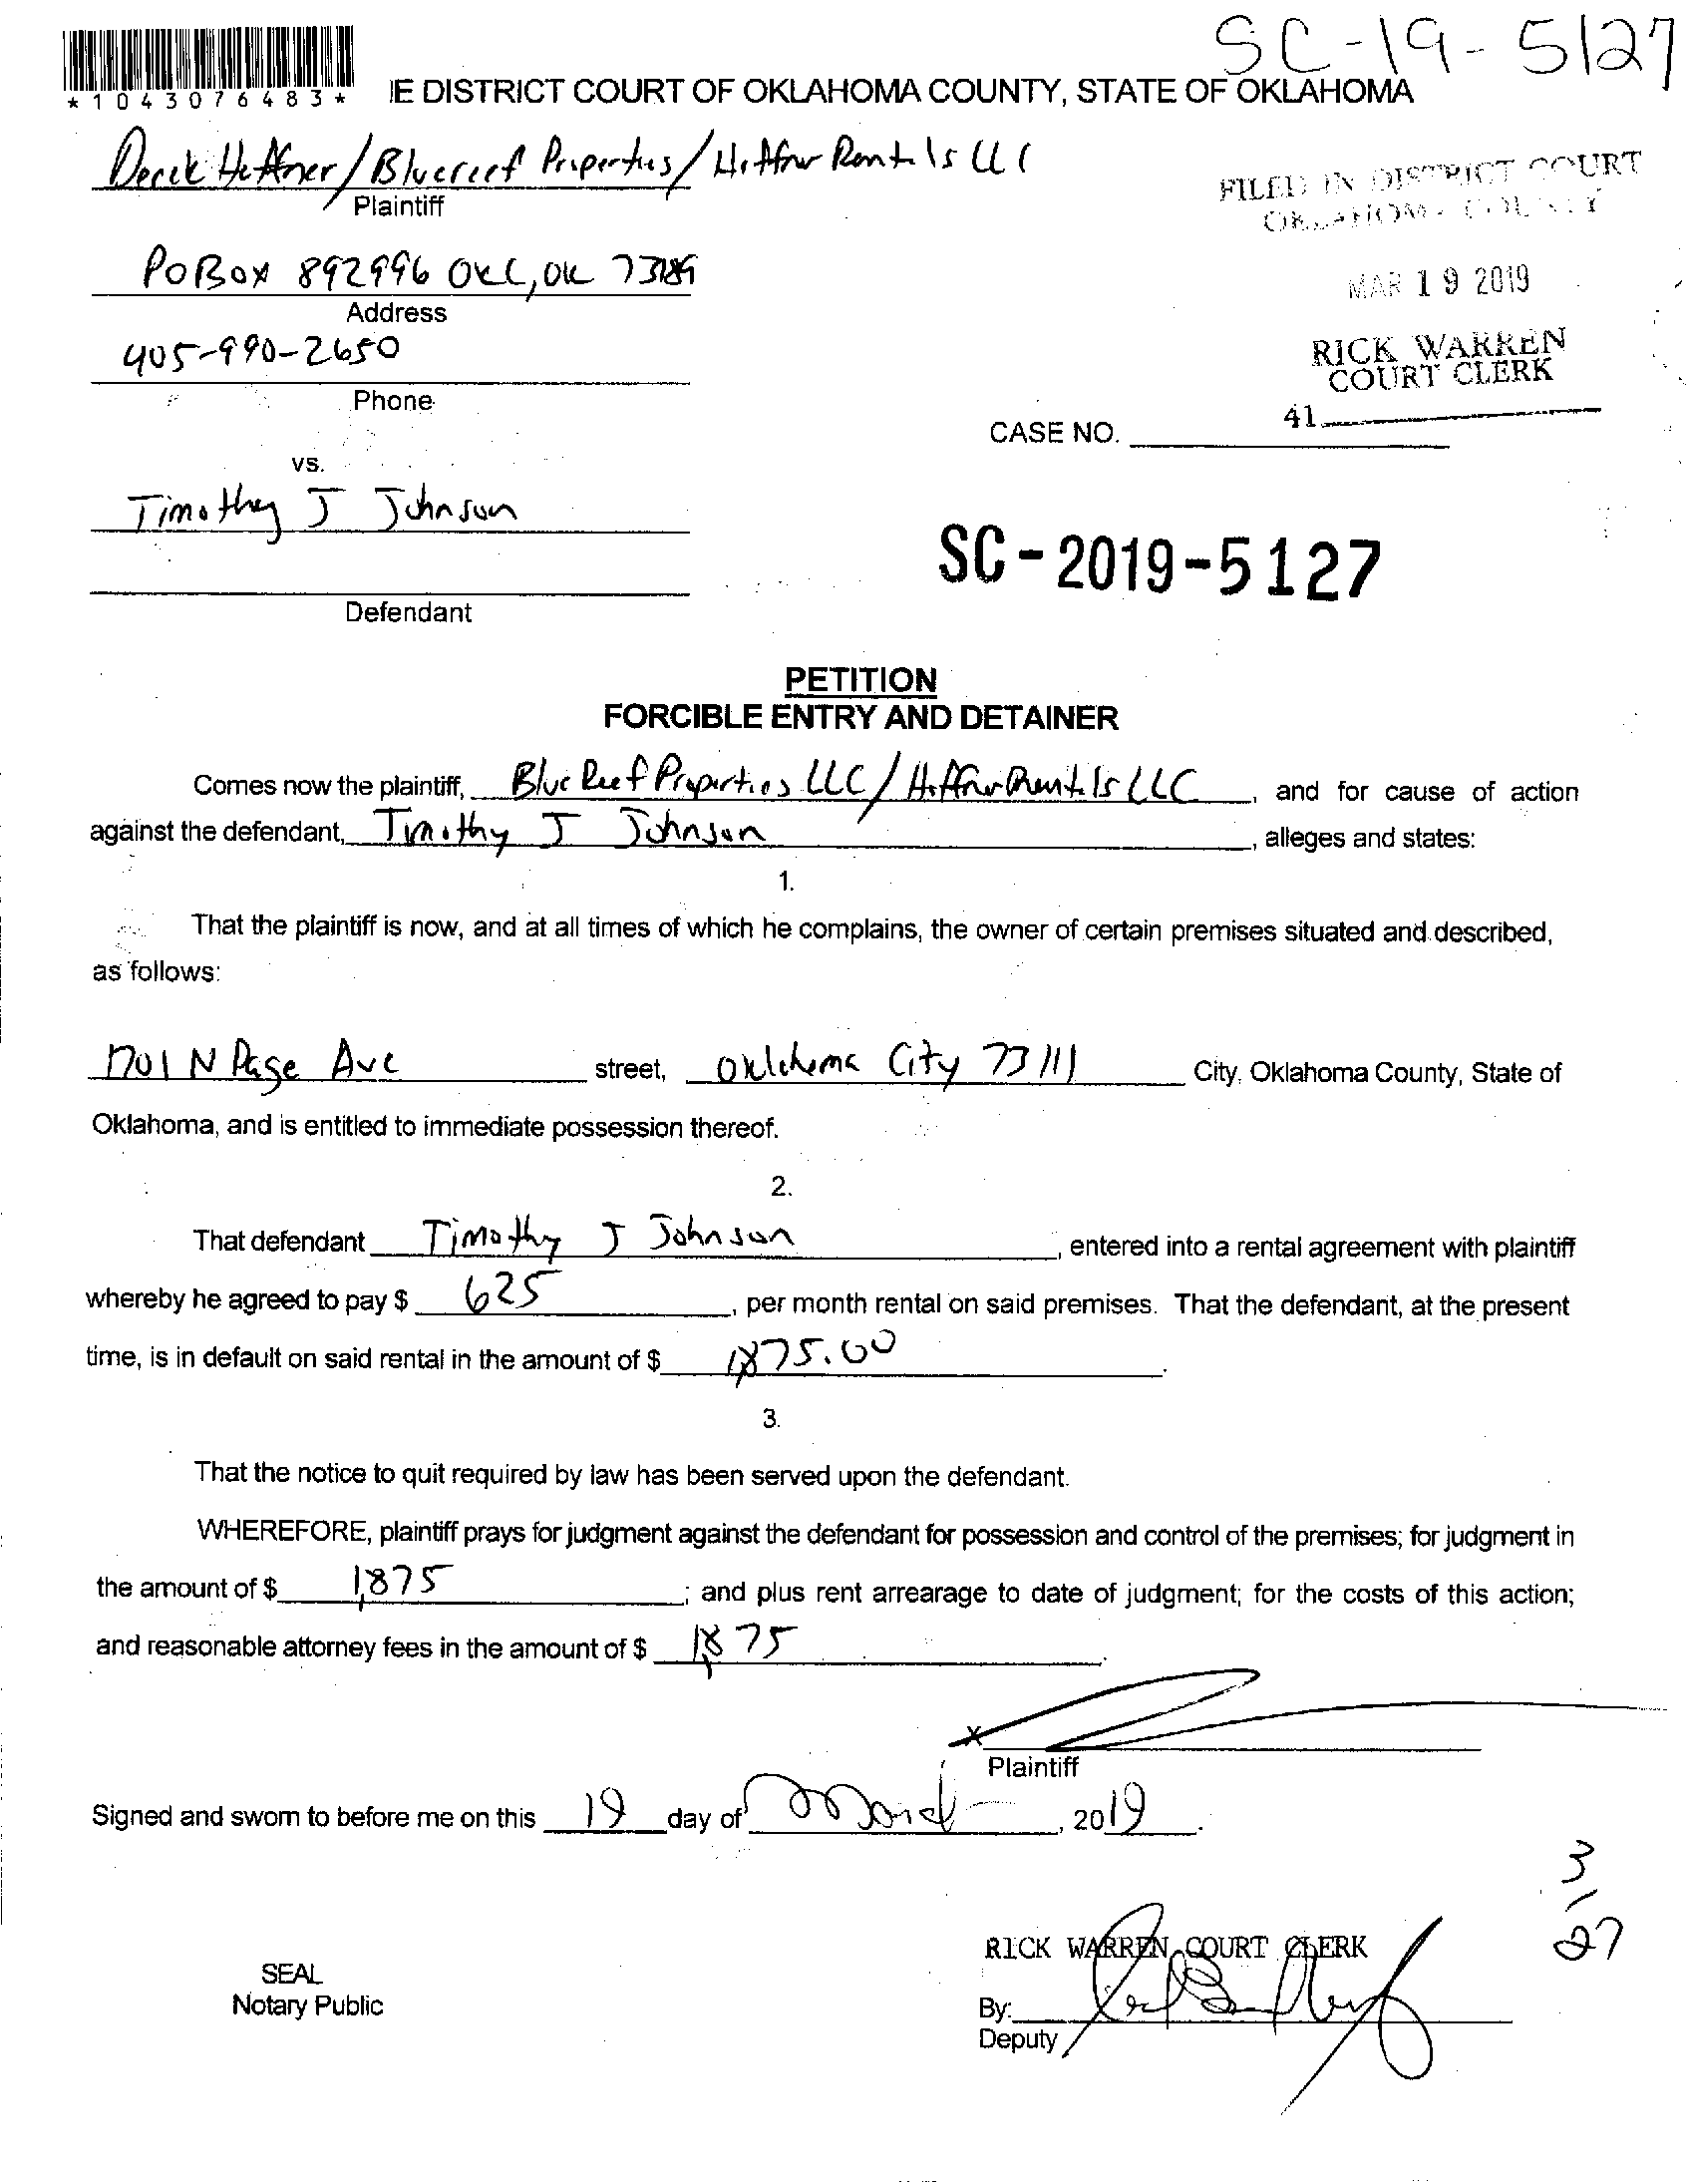 SC-19-5127
*1043076483*
IE DISTRICT COURT OF OKLAHOMA COUNTY, STATE OF OKLAHOMA
Derek Heffner/Bluereef Properties/Heffner Rentals LLC
Plaintiff
FILED IN DISTRICT COURT
OKLAHOMA COUNTY
PO Box 892996 OKC, OK 73189
Address
MAR 19 2019
405-990-2650
Phone
RICK WARREN
COURT CLERK
41
CASE NO.
vs.
Timothy J Johnson
SC-2019-5127
Defendant
PETITION
FORCIBLE ENTRY AND DETAINER
Comes now the plaintiff, Blue Reef Properties LLC/Heffner Rentals LLC, and for cause of action
against the defendant, Timothy J Johnson, alleges and states:
1.
That the plaintiff is now, and at all times of which he complains, the owner of certain premises situated and described,
as follows:
1701 N Page Ave street, Oklahoma City 73111 City, Oklahoma County, State of
Oklahoma, and is entitled to immediate possession thereof.
2.
That defendant Timothy J Johnson, entered into a rental agreement with plaintiff
whereby he agreed to pay $ 625, per month rental on said premises. That the defendant, at the present
time, is in default on said rental in the amount of $ 1,875.00.
3.
That the notice to quit required by law has been served upon the defendant.
WHEREFORE, plaintiff prays for judgment against the defendant for possession and control of the premises; for judgment in
the amount of $ 1,875; and plus rent arrearage to date of judgment; for the costs of this action;
and reasonable attorney fees in the amount of $ 1,875.
x
Plaintiff
Signed and sworn to before me on this 19 day of March, 2019.
3/27
RICK WARREN, COURT CLERK
SEAL
Notary Public
By:
Deputy